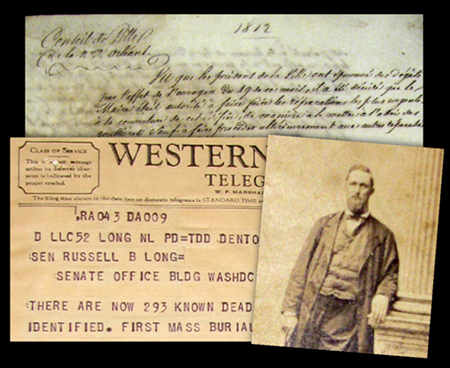 1812
Conseil de Ville
de la Nlle Orléans.
Vu que les prisons de la Ville ont éprouvé des dégats
par l'effet de l'ouragan du 19 de ce mois, il a été décrété que le
Maire était autorisé à faire faire les réparations les plus
à la couverture de cet de manière à le mettre à l'abri des
à faire aux autres
CLASS OF SERVICE
This is a
message
unless its deferred char-
acter is indicated by the
proper symbol.
WESTERN
TELEG
W. P. MARSHA
The filing time shown in the date line on domestic telegrams is STANDARD TIME
.RA043 DA009
D LLC52 LONG NL PD=TDD DENTO
SEN RUSSELL B LONG=
SENATE OFFICE BLDG WASHDC
THERE ARE NOW 293 KNOWN DEAD
IDENTIFIED. FIRST MASS BURIA